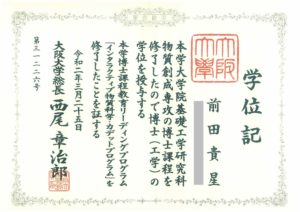 学位記
大阪大学
前田貴星
本学大学院基礎工学研究科
物質創成専攻の博士課程を
修了したので博士(工学)の
学位を授与する
本学博士課程教育リーディングプログラム
「インタラクティブ物質科学・カデットプログラム」を
修了したことを証する
令和二年三月二十五日
大阪大学総長 西尾章治郎
第三一二二六号